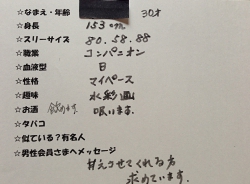 ☆なまえ・年齢 30才
☆身長 153センチ
☆スリーサイズ 80.58.88
☆職業 コンパニオン
☆血液型 B
☆性格 マイペース
☆趣味 水彩画
☆お酒 飲めます 吸います。
☆タバコ
☆似ている？有名人
☆男性会員さまへメッセージ
甘えさせてくれる方
求めています。